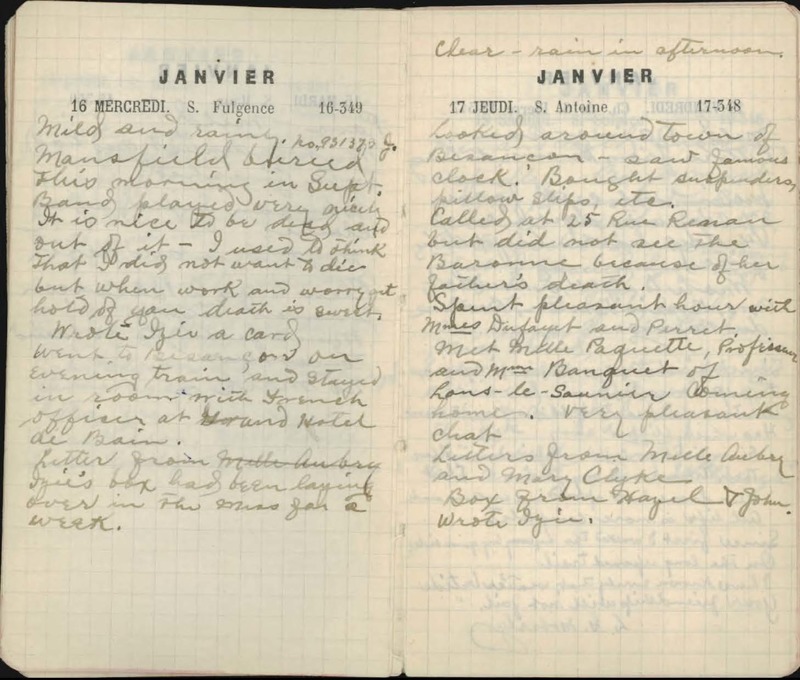 JANVIER
16 MERCREDI. S. Fulgence 16-349
Mild and rainy. No. 931373 J.
Mansfield buried
this morning in Supt.
Band played very nicely
It is nice to be dead and
out of it – I used to think
that I did not want to die
but when work and worry get
hold of you death is sweet.
Wrote Izie a card
Went to Besançon on
evening train and stayed
in room with French
officer at Grand Hotel
de Bain.
Letter from Mlle Aubry
Izie's box had been laying
over in the mess for a
week.
Clear – rain in afternoon.
JANVIER
17 JEUDI. S. Antoine 17-348
Looked around town of
Besancon – saw famous
clock. Bought suspenders,
pillow slips etc.
Called at 25 Rue Renan
but did not see the
Baronne because of her
father's death.
Spent pleasant hour with
Mmes Dufayet and Perret.
Met Mlle Paquette, Professeur
and Mme Banquet of
Lons-le-Saunier coming
home. Very pleasant
chat
Letters from Mlle Aubry
and Mary Clyke
Box from Hazel & John.
Wrote Izie.